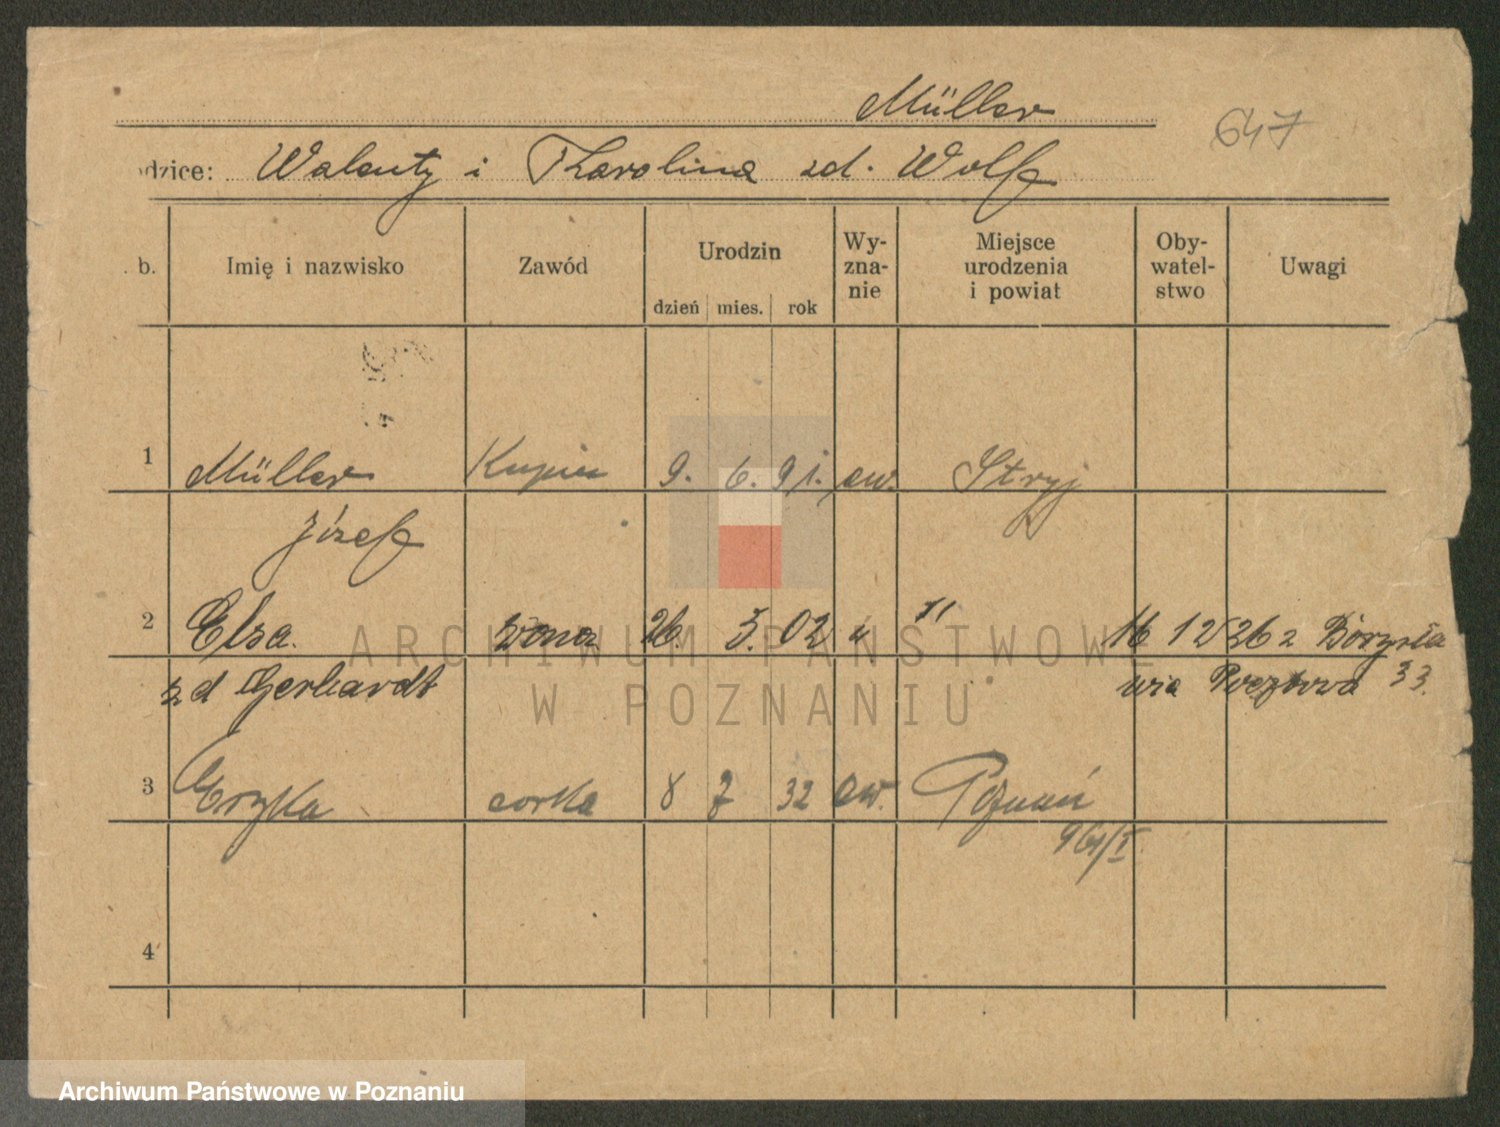 Müller
647
odzice: Walenty i Karolina zd. Wolf
b. Imię i nazwisko Zawód Urodzin dzień mies. rok Wy-zna-nie Miejsce urodzenia i powiat Oby-watel-stwo Uwagi
1 Müller Kupiec 9. 6. 91. ew. Stryj
Józef
2 Elza. żona 26. 3. 02 " 16 12 26 z Borysła
zd Gerhardt wia Pocztowa 33.
3 Eryka corka 8 7 32 ew. Poznań
961/I
4
ARCHIWUM PAŃSTWOWE
W POZNANIU
Archiwum Państwowe w Poznaniu